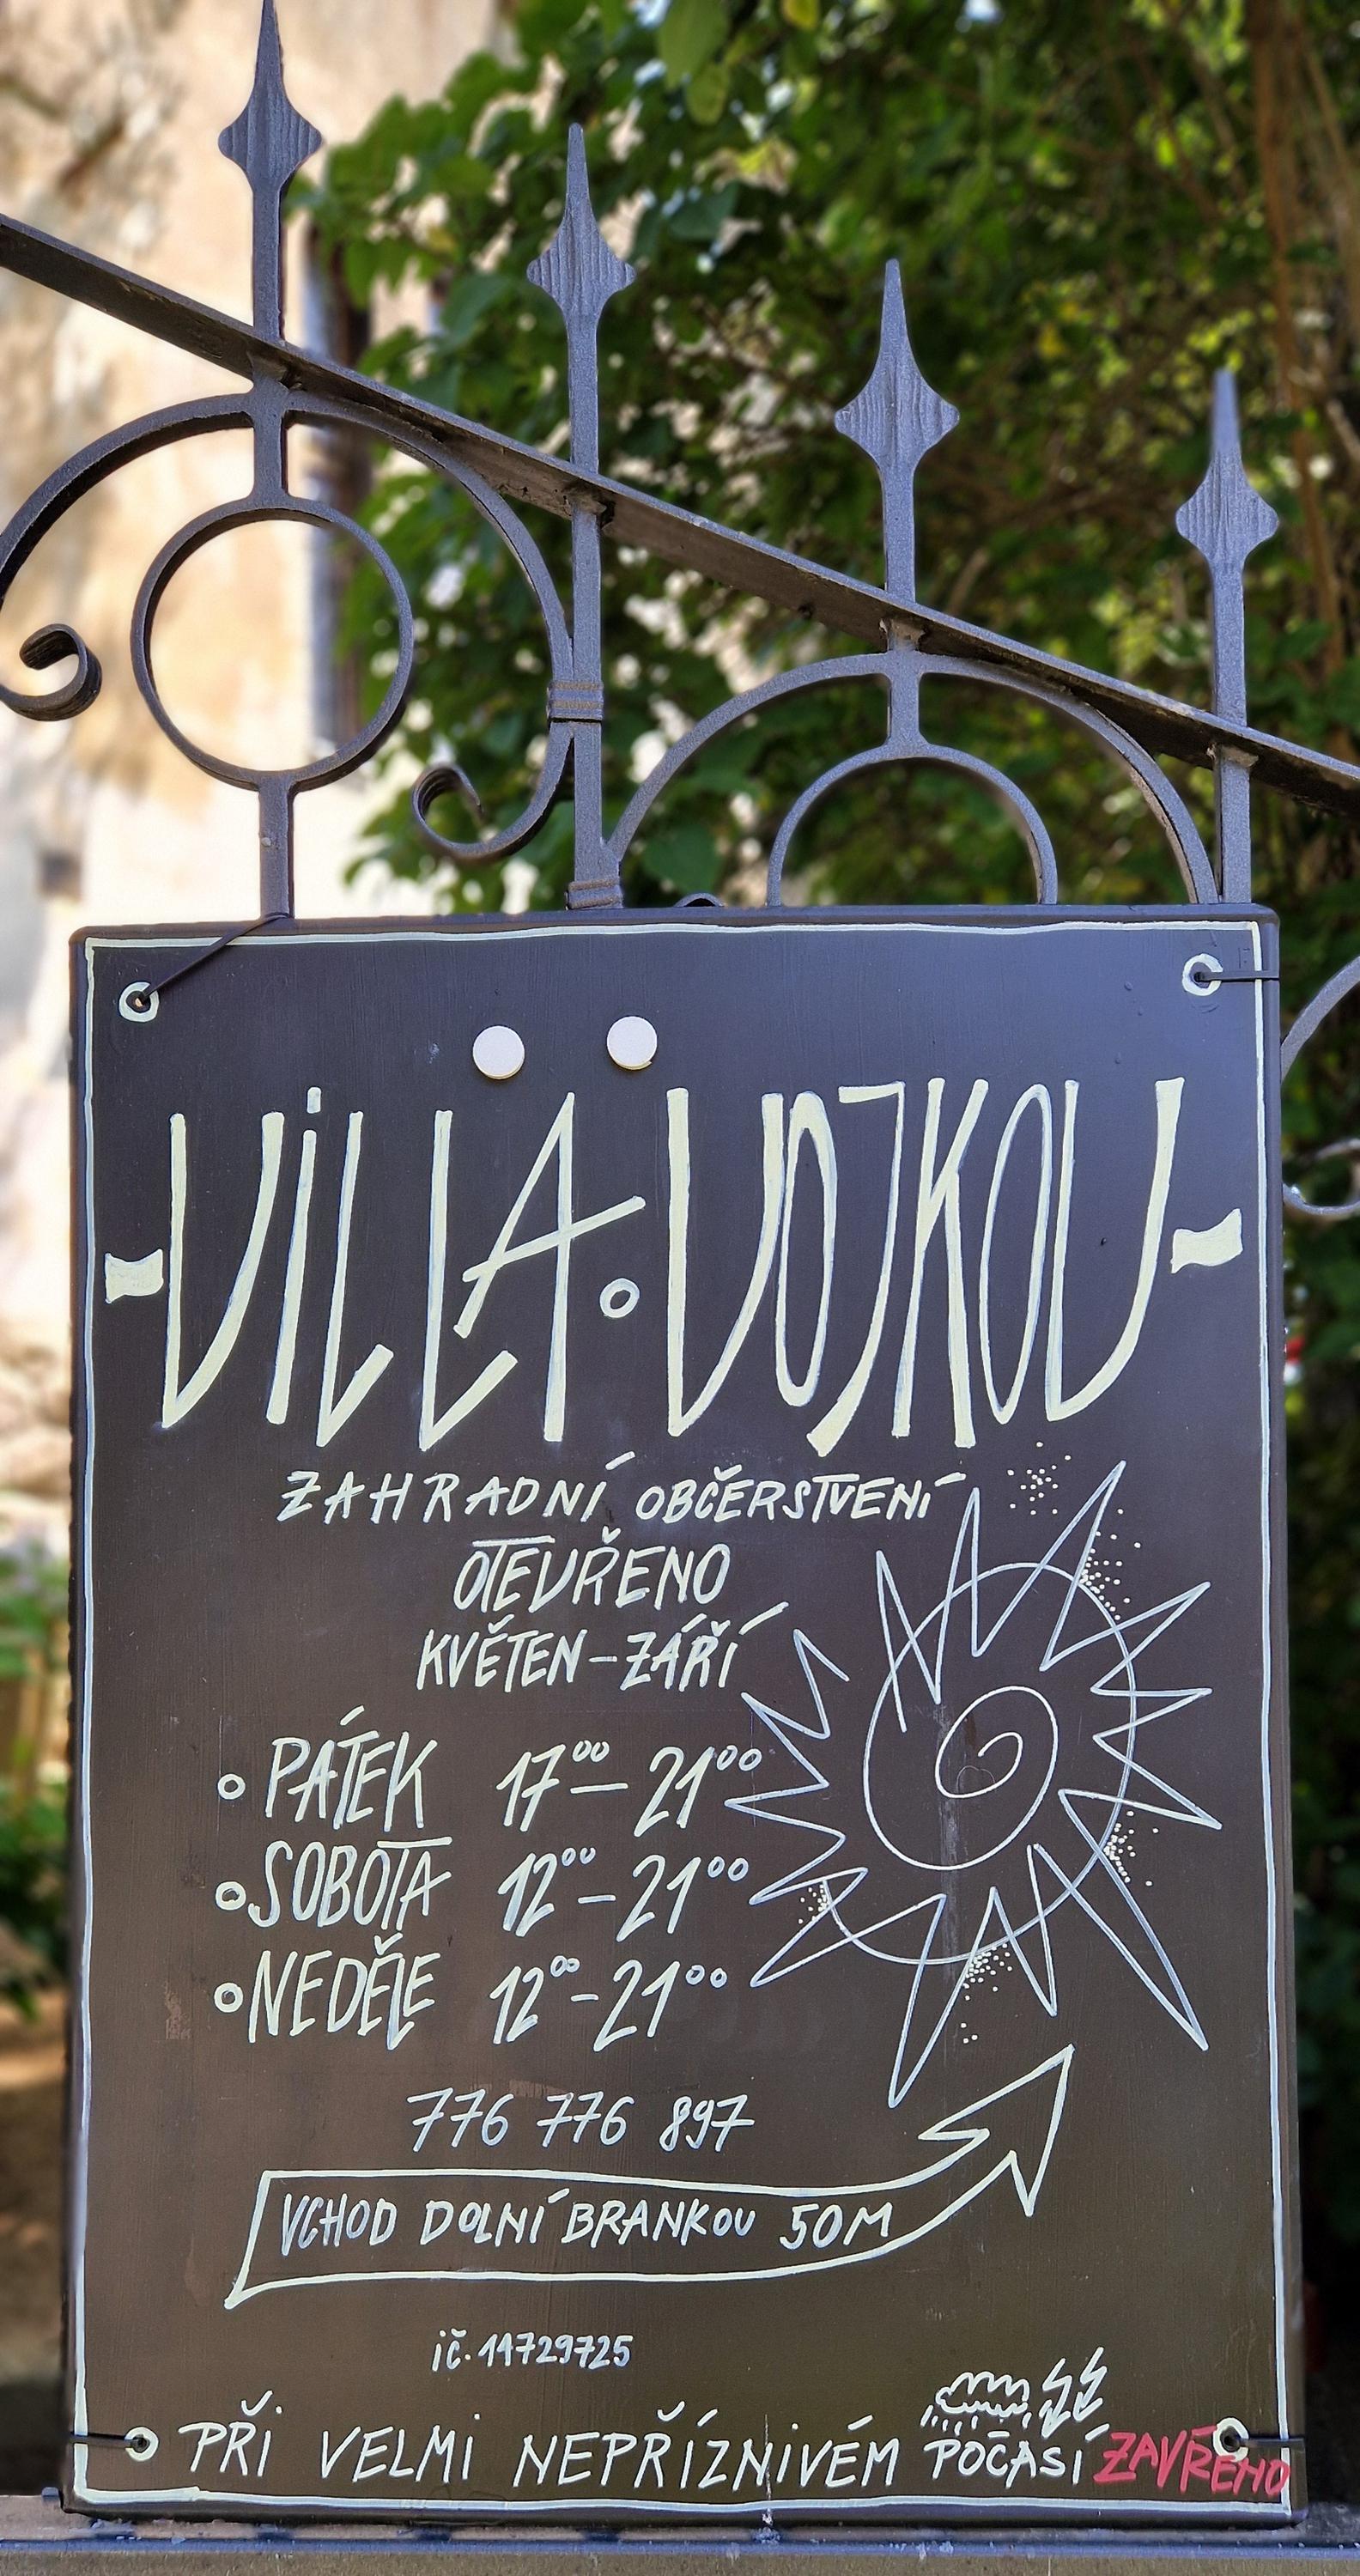 -VILLÄ·VOJKOV-
ZAHRADNÍ OBČERSTVENÍ
OTEVŘENO
KVĚTEN-ZÁŘÍ
PÁTEK 17⁰⁰-21⁰⁰
SOBOTA 12⁰⁰-21⁰⁰
NEDĚLE 12⁰⁰-21⁰⁰
776 776 897
VCHOD DOLNÍ BRANKOU 50M
ič. 14729725
PŘI VELMI NEPŘÍZNIVÉM POČASÍ ZAVŘENO